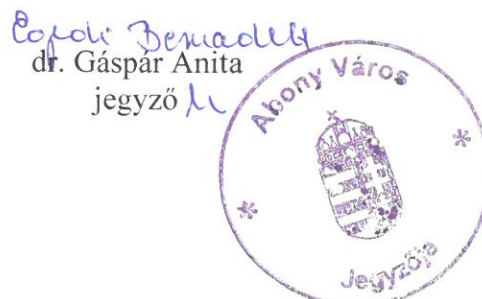 Bernadett
dr. Gáspár Anita
jegyző
Abony Város
Jegyzője